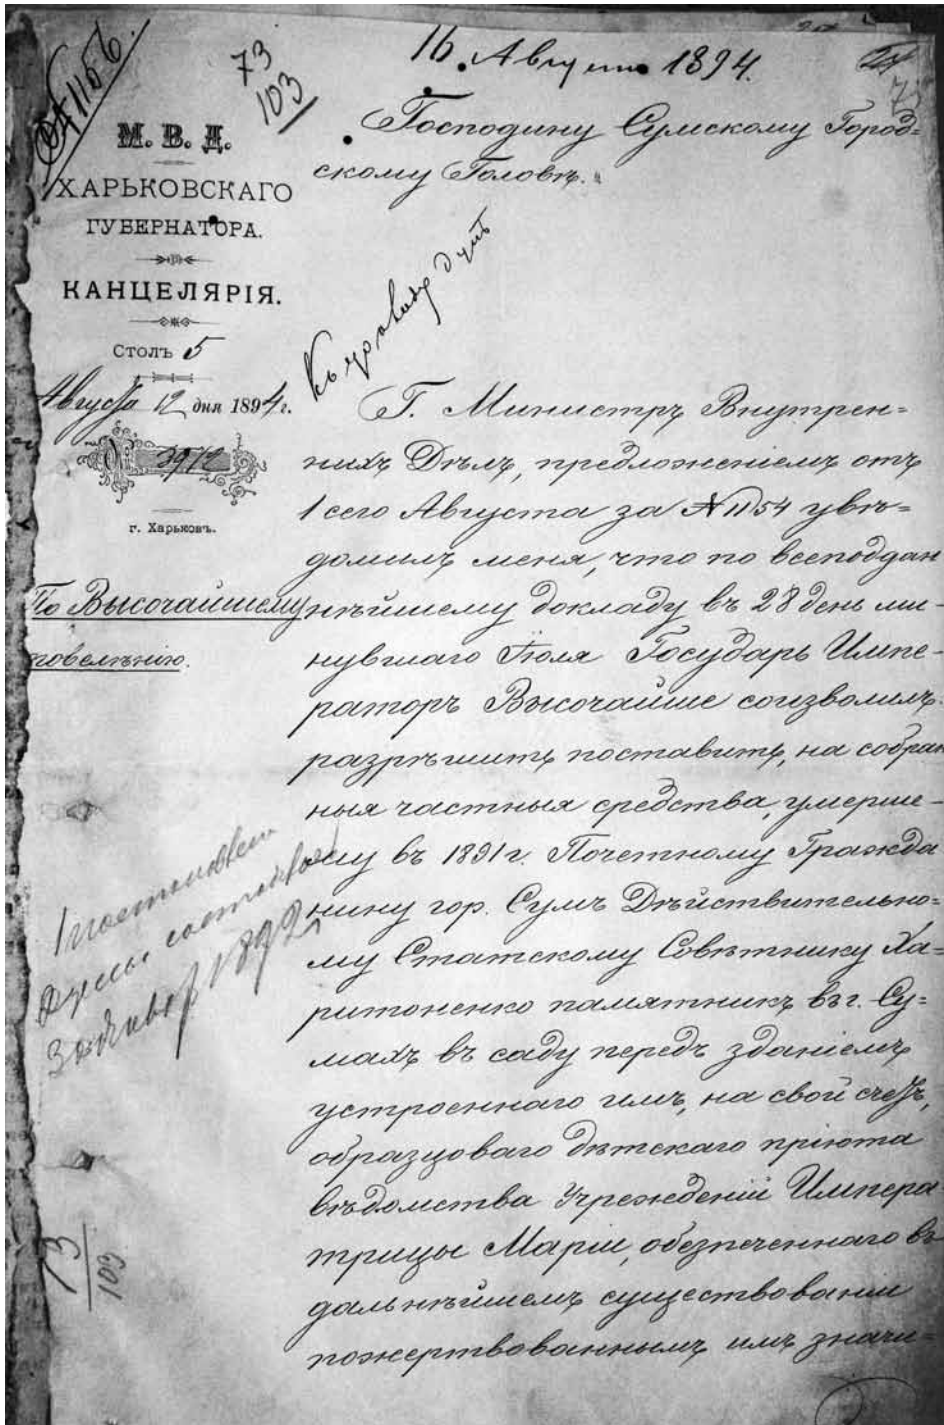 16 Августа 1894.
73
103
М. В. Д.
ХАРЬКОВСКАГО
ГУБЕРНАТОРА.
КАНЦЕЛЯРІЯ.
Столъ 5
Августа 12 дня 1894 г.
№ 3972
г. Харьковъ.
По Высочайшему
повелѣнію.
Господину Сумскому Город=
скому Головѣ.
Къ
думѣ
Г. Министръ Внутрен=
нихъ Дѣлъ, предложеніемъ отъ
1 сего Августа за № 1154 увѣ=
домилъ меня, что по всеподдан
нѣйшему докладу въ 28 день ми-
нувшаго Іюля Государь Импе-
раторъ Высочайше соизволилъ
разрѣшить поставить, на собран
ныя частныя средства, умерше-
му въ 1891 г. Почетному Гражда
нину гор. Сумъ Дѣйствительно=
му Статскому Совѣтнику Ха=
ритоненко памятникъ въ г. Су=
махъ въ саду передъ зданіемъ
устроеннаго имъ, на свой счетъ,
образцоваго дѣтскаго пріюта
вѣдомства Учрежденій Импера
трицы Маріи, обезпеченнаго въ
дальнѣйшемъ существованіи
пожертвованнымъ имъ значи=
Думы
1892
73
103